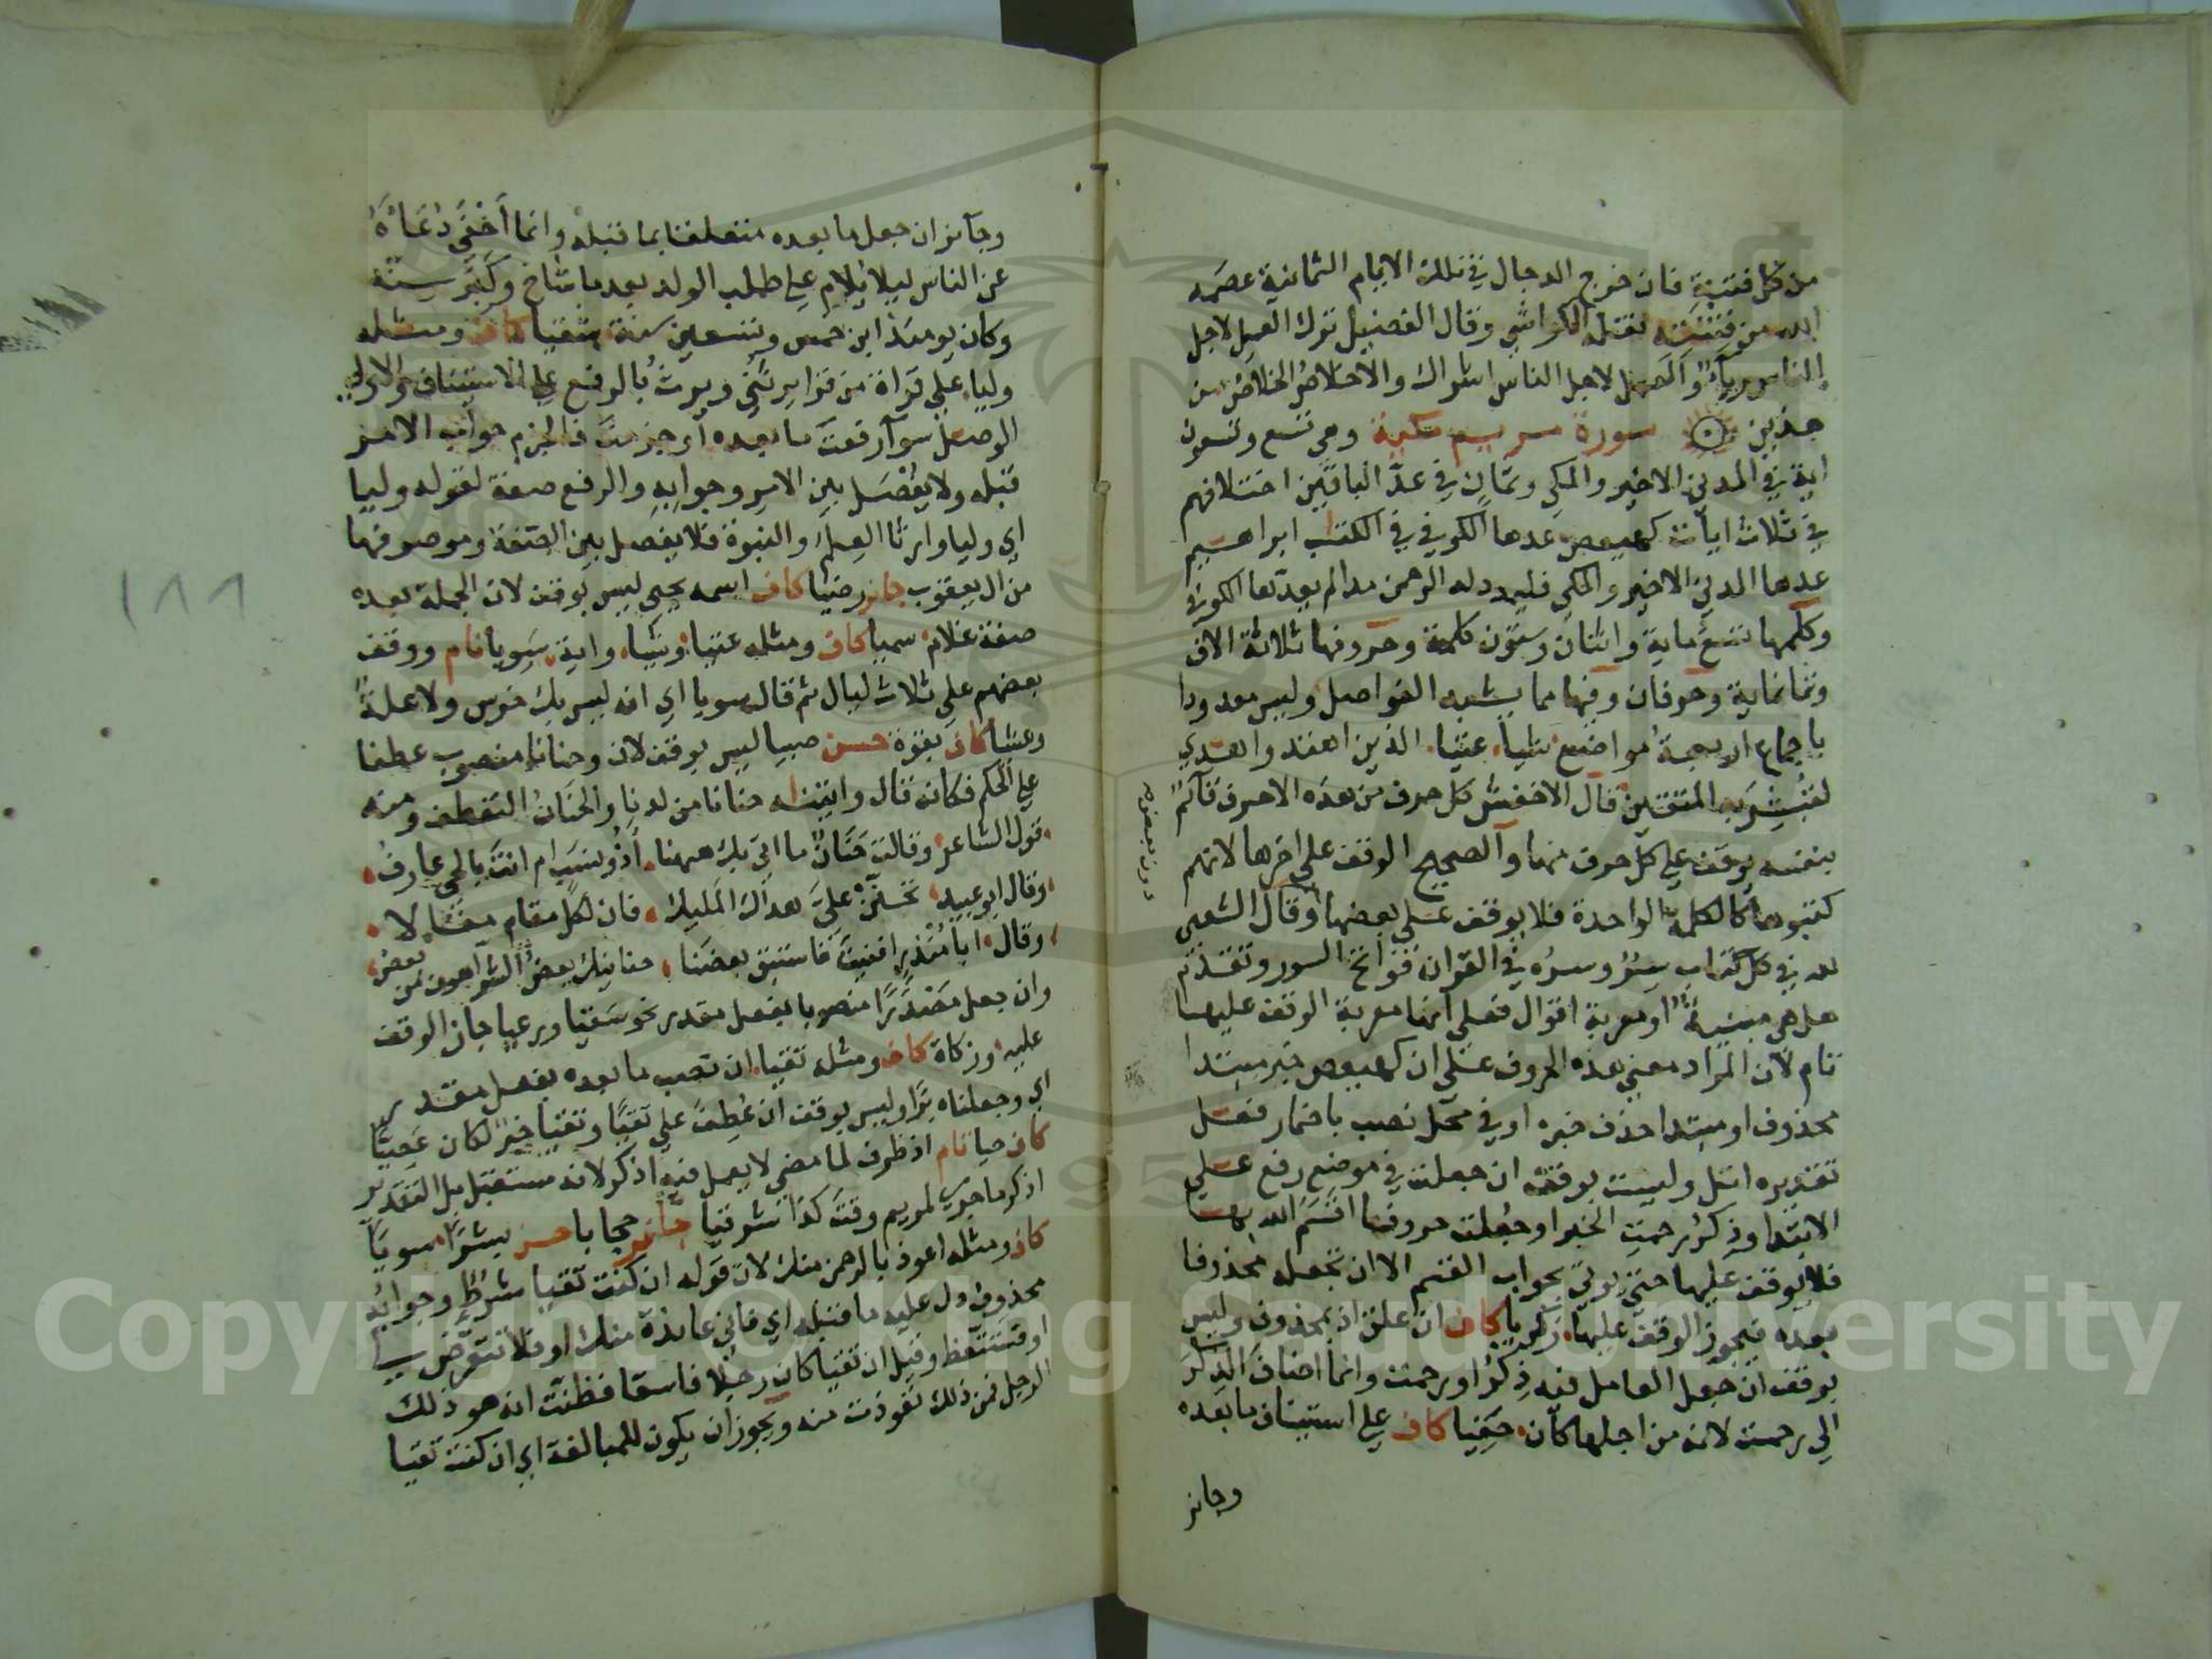 من كل فتنة فان خرج الدجال في تلك الايام الثمانية عصمه
الله من فتنته نقله الكواشي وقال الفضيل ترك العمل لاجل
الناس رياءً والعمل لاجل الناس اشراك والاخلاص الخلاص من
هذين سورة مريم مكية وهي تسع وتسعون
اية في المدني الاخير والمكي وثمان في عدّ الباقين اختلافهم
في ثلاث ايات كهيعص عدها الكوفي في الكتاب ابراهيم
عدها المدني الاخير والمكي فليمدد له الرحمن مدا لم يعدّها الكوفي
وكلمها تسع ماية واثنان وستون كلمة وحروفها ثلاثة الاف
وثمانماية وحرفان وفيها مما يشبه الفواصل وليس معدودا
باجماع اربعة مواضع شيبا عتيا الذين اهتدوا هدى
لتبشر به المتقين قال الاخفش كل حرف من هذه الاحرف قائم
بنفسه يوقف على كل حرف منها والصحيح الوقف على اخرها لانهم
كتبوها كالكلمة الواحدة فلا يوقف على بعضها وقال الشعبي
لله في كل كتاب سرّ وسرّه في القران فواتح السور وتقدّم
هل هي مبنية او معربة اقوال فعلى انها معربة الوقف عليها
تام لان المراد معنى هذه الحروف على ان كهيعص خبر مبتدا
محذوف او مبتدا حذف خبره او في محل نصب باضمار فعل
تقديره اتل وليست بوقف ان جعلت في موضع رفع على
الابتدا وذكرُ رحمتِ الخبر او جُعلت حروفا اقسَم الله بها
فلا يوقف عليها حتى يوتى بجواب القسم الا ان تجعله محذوفا
بعده فيجوز الوقف عليها زكريا كاف ان علق اذ بمحذوف وليس
بوقف ان جعل العامل فيه ذِكرُ او رحمت وانما اضاف الذكر
الى رحمت لانه من اجلها كان خفيا كاف على استيناف ما بعده
وجائز
دون بعض
وجائز ان جعل ما بعده متعلقا بما قبله وانما اَخْفَى دُعَاءَهُ
عن الناس ليلا يُلام على طلب الولد بعد ما شاخ وكَبُر سِنّه
وكان يومئذ ابن خمس وتسعين سنة شقيا كاف ومثله
وليا على قراة من قرا يرثني ويرث بالرفع على الاستيناف والاولى
الوصل سوآ رفعتَ ما بعده او جزمتَ فالجزم جواب الامر
قبله ولا يُفْصَل بين الامر وجوابه والرفع صفة لقوله وليا
اي وليا وارثا العلم والنبوة فلا يفصل بين الصفة وموصوفها
من ال يعقوب جائز رضيا كاف اسمه يحيى ليس بوقف لان الجملة بعده
صفة غلام سميا كاف ومثله عتيا وشيا واية سَويا تام ووقف
بعضهم على ثلاث ليال ثم قال سويا اي انه ليس بك خرس ولا علة
وعشيا كاف بقوة حسن صبيا ليس بوقف لان وحنانا منصوب عطفا
على الحكم فكانه قال واتيناه حنانا من لدنا والحَنَان التعطف ومنه
قول الشاعر وقالت حَنَانٌ ما اتى بك ههنا اَذُو نسَب ام انتَ بالحي عارفُ
وقال ابو عبيد تَحنّن عليّ هداك المليك فان لكل مقام مقالا
وقال ابا مُنْذرٍ افنيتَ فاستبق بعضَنا حنانيك بعضُ الشر اهون من بعض
وان جعل مَصْدَرًا منصوبا بفعل مقدر نحو سَقيا ورعيا جاز الوقف
عليه وزكاة كاف ومثله تقيا ان نصب ما بعده بفعل مقدر
اي وجعلناه برًّا وليس بوقف ان عُطِفَ على تقيًّا وتقيا خبر لكان عَصِيًّا
كاف حيا تام اذ ظرف لما مضى لا يعمل فيه اذكر لانه مستقبل بل التقدير
اذكر ما جرى لمريم وقتَ كذا شرقيا جائز حجابا حسن بشرًا سويّا
كاف ومثله اعوذ بالرحمن منك لان قوله ان كنت تقيا شرطٌ وجوابُه
محذوف دل عليه ما قبله اي فاني عايذة منك او فلا تتعرّض بي
او فستتعظ وقيل ان تقيا كان رجلا فاسقا فظنت انه هو ذلك
الرجل فمن ذلك تعوذت منه ويجوز ان يكون للمبالغة اي ان كنت تقيا
١٨٨
Copyright © King Saud University